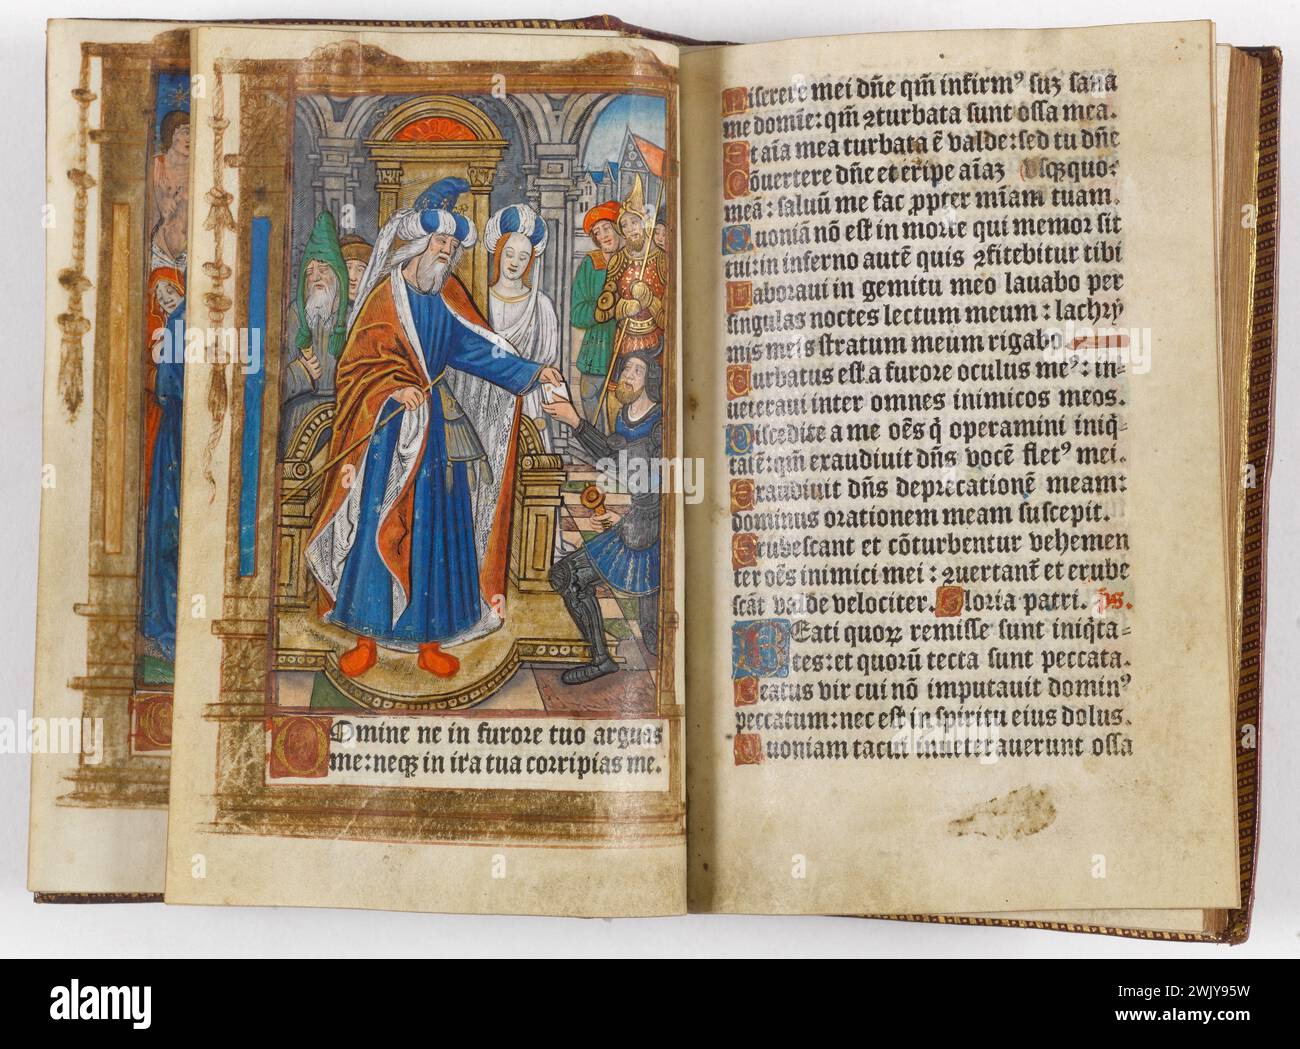 Domine ne in furore tuo arguas
me: neqꝫ in ira tua corripias me.
Miserere mei dñe qm̃ infirmꝰ suꝫ sana
me domĩe: qm̃ ꝯturbata sunt ossa mea.
Et aĩa mea turbata ẽ valde: sed tu dñe
Cõvertere dñe et eripe aĩaꝫ vsqꝫquo:
meã: saluũ me fac ꝓpter mĩam tuam.
Quoniã nõ est in morte qui memor sit
tui: in inferno autẽ quis ꝯfitebitur tibi
Laboraui in gemitu meo lauabo per
singulas noctes lectum meum: lachry
mis meis stratum meum rigabo.
Turbatus est a furore oculus meꝰ: in=
ueteraui inter omnes inimicos meos.
Discedite a me oẽs q̃ operamini iniq̃=
tatẽ: qm̃ exaudiuit dñs vocẽ fletꝰ mei.
Exaudiuit dñs deprecationẽ meam:
dominus orationem meam suscepit.
Erubescant et cõturbentur vehemen
ter oẽs inimici mei: ꝯuertant̃ et erube
scãt valde velociter. Gloria patri. p̃s.
Beati quoꝝ remisse sunt iniq̃ta=
tes: et quorũ tecta sunt peccata.
Beatus vir cui nõ imputauit dominꝰ
peccatum: nec est in spiritu eius dolus.
Quoniam tacui inueterauerunt ossa
alamy
Image ID: 2WJY95W
www.alamy.com